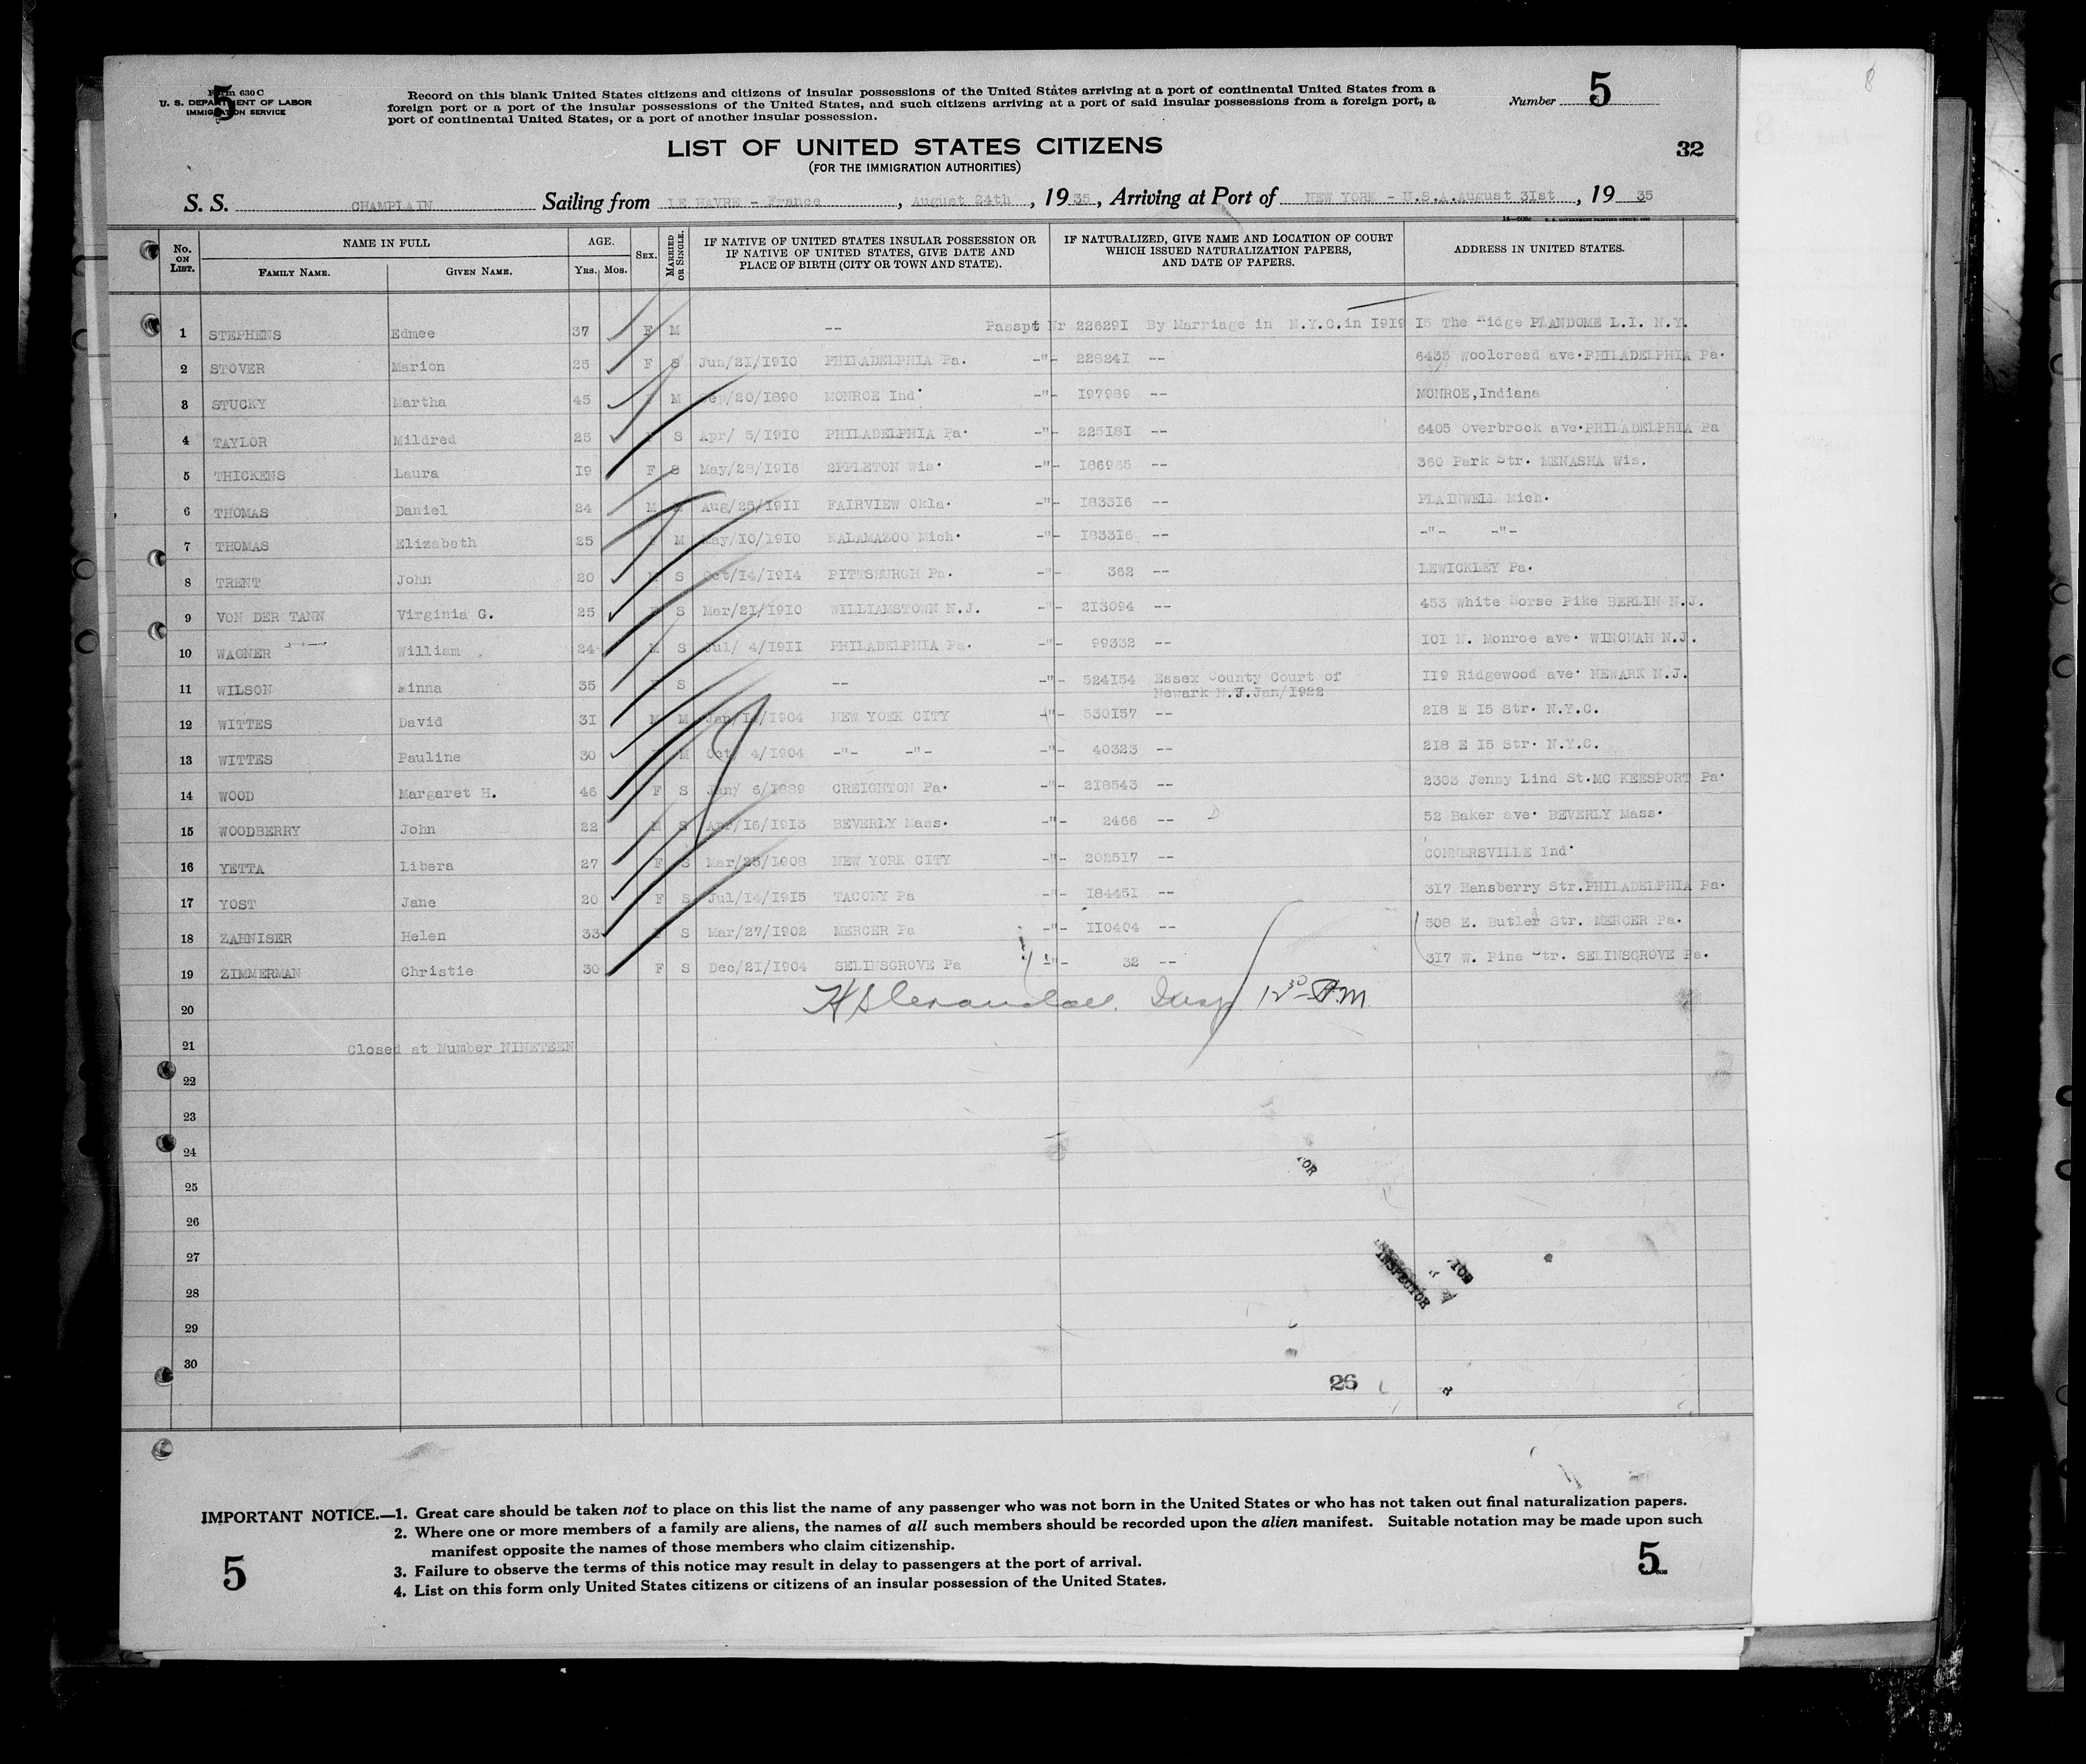 Form 630 C
U. S. DEPARTMENT OF LABOR
IMMIGRATION SERVICE
5
Record on this blank United States citizens and citizens of insular possessions of the United States arriving at a port of continental United States from a
foreign port or a port of the insular possessions of the United States, and such citizens arriving at a port of said insular possessions from a foreign port, a
port of continental United States, or a port of another insular possession.
Number 5
LIST OF UNITED STATES CITIZENS
(FOR THE IMMIGRATION AUTHORITIES)
32
S. S. CHAMPLAIN Sailing from LE HAVRE - France, August 24th, 1935, Arriving at Port of NEW YORK - U.S.A. August 31st, 19 35
No. ON LIST. NAME IN FULL FAMILY NAME. GIVEN NAME. AGE. Yrs. Mos. SEX. MARRIED OR SINGLE. IF NATIVE OF UNITED STATES INSULAR POSSESSION OR IF NATIVE OF UNITED STATES, GIVE DATE AND PLACE OF BIRTH (CITY OR TOWN AND STATE). IF NATURALIZED, GIVE NAME AND LOCATION OF COURT WHICH ISSUED NATURALIZATION PAPERS, AND DATE OF PAPERS. ADDRESS IN UNITED STATES.
1 STEPHENS Edmee 37 F M -- Passpt Nr 226291 By Marriage in N.Y.C. in 1919 15 The Ridge PLANDOME L.I. N.Y.
2 STOVER Marion 25 F S Jun/21/1910 PHILADELPHIA Pa. -"- 228241 -- 6435 Woolcresd ave. PHILADELPHIA Pa.
3 STUCKY Martha 45 M Sep/20/1890 MONROE Ind. -"- 197989 -- MONROE, Indiana
4 TAYLOR Mildred 25 S Apr/ 5/1910 PHILADELPHIA Pa. -"- 225181 -- 6405 Overbrook ave. PHILADELPHIA Pa
5 THICKENS Laura 19 F S May/28/1916 2PPLETON Wis. -"- 186965 -- 360 Park Str. MENASHA Wis.
6 THOMAS Daniel 24 M Aug/25/1911 FAIRVIEW Okla. -"- 183316 -- PLAINWELL Mich.
7 THOMAS Elizabeth 25 M May/10/1910 KALAMAZOO Mich. -"- 183316 -- -"- -"-
8 TRENT John 20 S Oct/14/1914 PITTSBURGH Pa. -"- 362 -- LEWICKLEY Pa.
9 VON DER TANN Virginia G. 25 S Mar/21/1910 WILLIAMSTOWN N.J. -"- 213094 -- 453 White Horse Pike BERLIN N.J.
10 WAGNER William 24 M S Jul/ 4/1911 PHILADELPHIA Pa. -"- 99332 -- 101 N. Monroe ave. WINONAH N.J.
11 WILSON Minna 35 S -- -"- 524154 Essex County Court of Newark N.J. Jan/1922 119 Ridgewood ave. NEWARK N.J.
12 WITTES David 31 M M Jan/ /1904 NEW YORK CITY -"- 530157 -- 218 E 15 Str. N.Y.C.
13 WITTES Pauline 30 M Oct/ 4/1904 -"- -"- -"- 40323 -- 218 E 15 Str. N.Y.C.
14 WOOD Margaret H. 46 F S Jan/ 6/1889 CREIGHTON Pa. -"- 218543 -- 2303 Jenny Lind St. MC KEESPORT Pa.
15 WOODBERRY John 22 M S Apr/16/1913 BEVERLY Mass. -"- 2466 -- D 52 Baker ave. BEVERLY Mass.
16 YETTA Libera 27 F S Mar/25/1908 NEW YORK CITY -"- 202517 -- CONNERSVILLE Ind.
17 YOST Jane 20 F S Jul/14/1915 TACONY Pa -"- 184451 -- 317 Hansberry Str. PHILADELPHIA Pa.
18 ZAHNISER Helen 33 S Mar/27/1902 MERCER Pa -"- 110404 -- 508 E. Butler Str. MERCER Pa.
19 ZIMMERMAN Christie 30 F S Dec/21/1904 SELINSGROVE Pa -"- 32 -- 317 W. Pine Str. SELINSGROVE Pa.
20 Insp 12 30 P.M.
21 Closed at Number NINETEEN
22
23
24
25
26
27
28
29
30
INSPECTOR
26
IMPORTANT NOTICE.—1. Great care should be taken not to place on this list the name of any passenger who was not born in the United States or who has not taken out final naturalization papers.
2. Where one or more members of a family are aliens, the names of all such members should be recorded upon the alien manifest. Suitable notation may be made upon such
manifest opposite the names of those members who claim citizenship.
3. Failure to observe the terms of this notice may result in delay to passengers at the port of arrival.
4. List on this form only United States citizens or citizens of an insular possession of the United States.
5
5